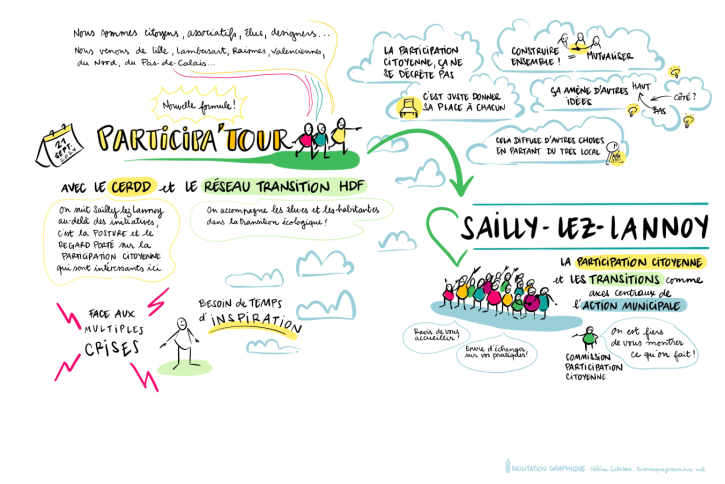 Nous sommes citoyens, associatifs, élus, designers...
Nous venons de Lille, Lambersart, Raismes, Valenciennes,
du Nord, du Pas-de-Calais...
Nouvelle formule!
21
SEPT.
PARTICIPA'TOUR
AVEC LE CERDD et LE RÉSEAU TRANSITION HDF
On suit Sailly-lez-Lannoy
au-delà des initiatives,
c'est la POSTURE et le
REGARD PORTÉ sur la
PARTICIPATION CITOYENNE
qui sont intéressants ici
On accompagne les élues et les habitantes
dans la transition écologique!
FACE AUX
MULTIPLES
CRISES
BESOIN de TEMPS
d'INSPIRATION
LA PARTICIPATION
CITOYENNE, ÇA NE
SE DÉCRÈTE PAS
C'EST JUSTE DONNER
SA PLACE À CHACUN
CONSTRUIRE
ENSEMBLE! = MUTUALISER
ÇA AMÈNE D'AUTRES
IDÉES
HAUT
CÔTÉ?
BAS
CELA DIFFUSE D'AUTRES CHOSES
EN PARTANT DU TRÈS LOCAL
SAILLY-LEZ-LANNOY
LA PARTICIPATION CITOYENNE
et LES TRANSITIONS comme
axes centraux de
l'ACTION MUNICIPALE
Ravis de vous
accueillir!
Envie d'échanger
sur vos pratiques!
COMMISSION
PARTICIPATION
CITOYENNE
On est fiers
de vous montrer
ce qu'on fait!
FACILITATION GRAPHIQUE